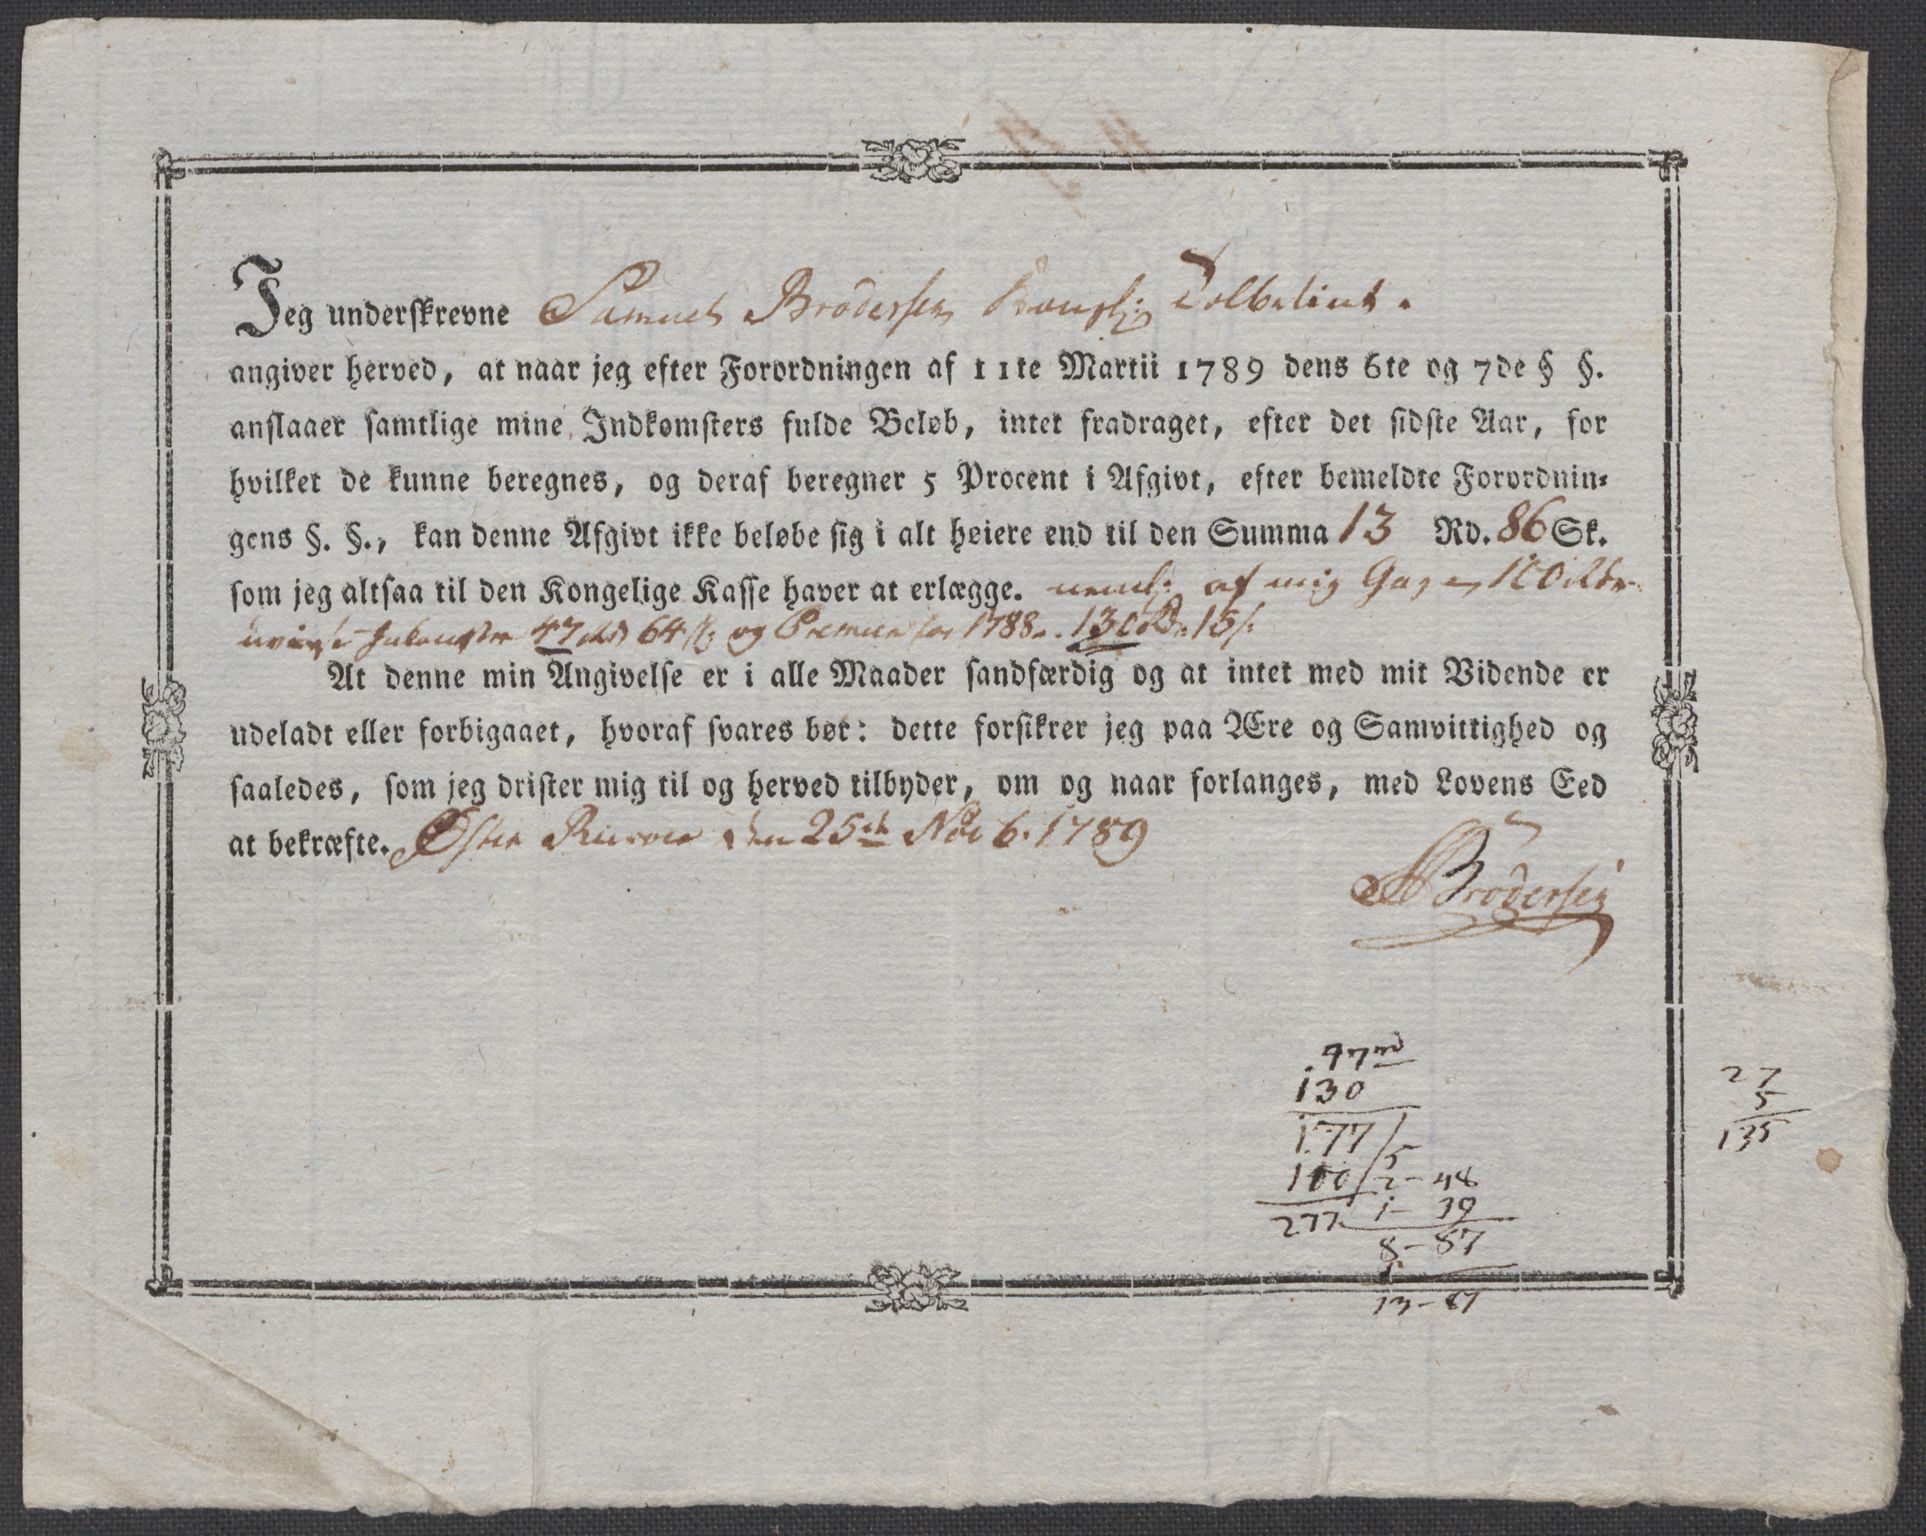 Jeg underskrevne Samuel Brodersen Kongl: Tolbetient.
angiver herved, at naar jeg efter Forordningen af 11te Martii 1789 dens 6te og 7de § §.
anslaaer samtlige mine Indkomsters fulde Beløb, intet fradraget, efter det sidste Aar, for
hvilket de kunne beregnes, og deraf beregner 5 Procent i Afgivt, efter bemeldte Forordnin=
gens §. §., kan denne Afgivt ikke beløbe sig i alt høiere end til den Summa 13 Rd. 86 Sk.
som jeg altsaa til den Kongelige Kasse haver at erlægge. neml: af mig Gage 100 Rdr
47 Rd 64 s og Premie for 1788. 130 Rd 15 s:
At denne min Angivelse er i alle Maader sandfærdig og at intet med mit Vidende er
udeladt eller forbigaaet, hvoraf svares bør: dette forsikrer jeg paa Ære og Samvittighed og
saaledes, som jeg drister mig til og herved tilbyder, om og naar forlanges, med Lovens Eed
at bekræfte. Øster Riisøer den 25de Novb. 1789
SBrodersen
47 rd
130
177
100
277
5
2 - 48
1 - 39
8 - 87
13 - 87
27
5
135